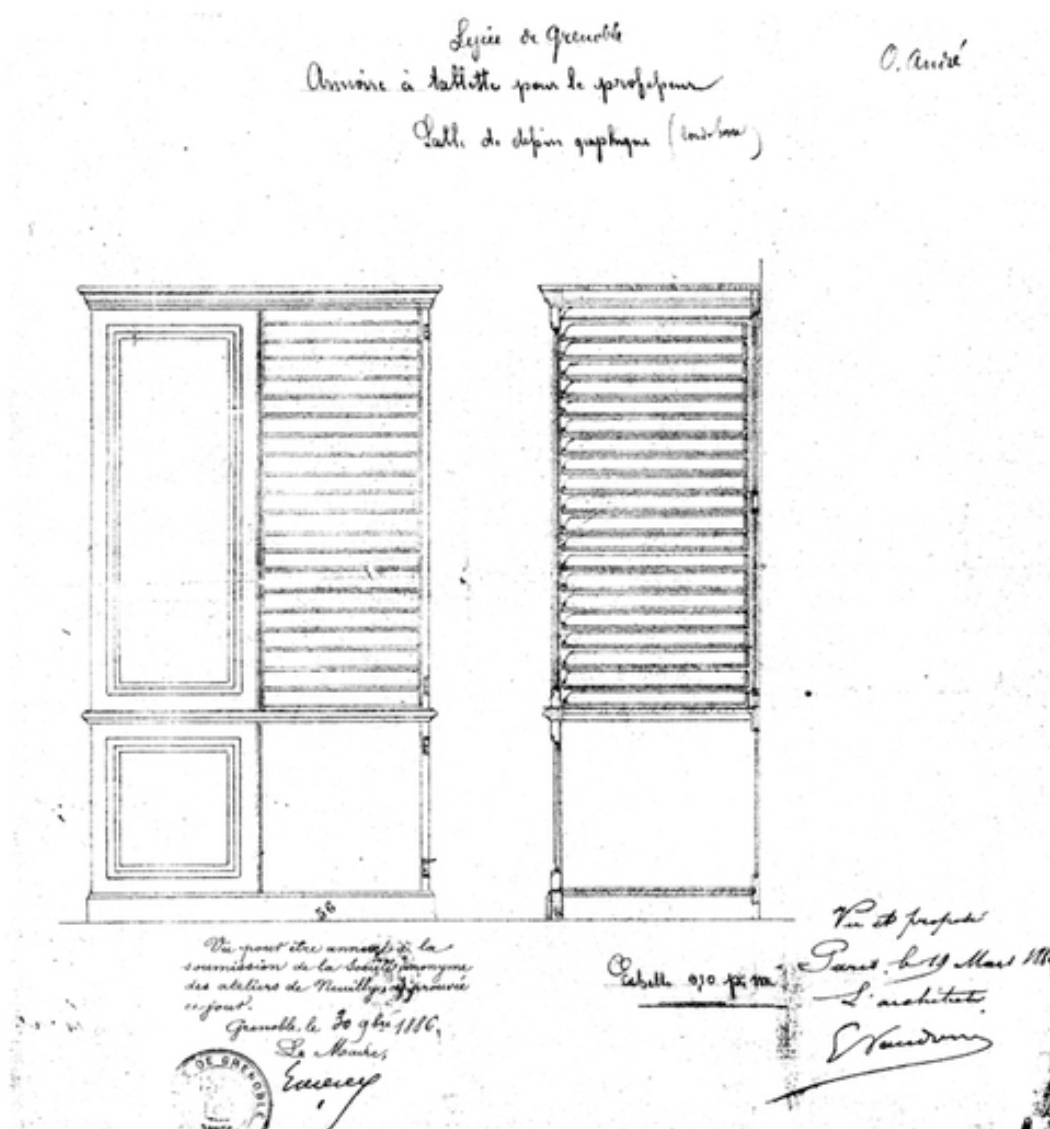 Lycée de Grenoble
O. André
Armoire à tablette pour le professeur
Salle de dessin graphique (
56
Vu pour être annexé à la
soumission de la Société anonyme
des ateliers de Neuilly, approuvée
ce jour.
Grenoble, le 30 9bre 1886.
Le Maire,
DE GRENOBLE
Echelle 0,10 p. m.
Vu et proposé
Paris, le 19 Mars
L'architecte